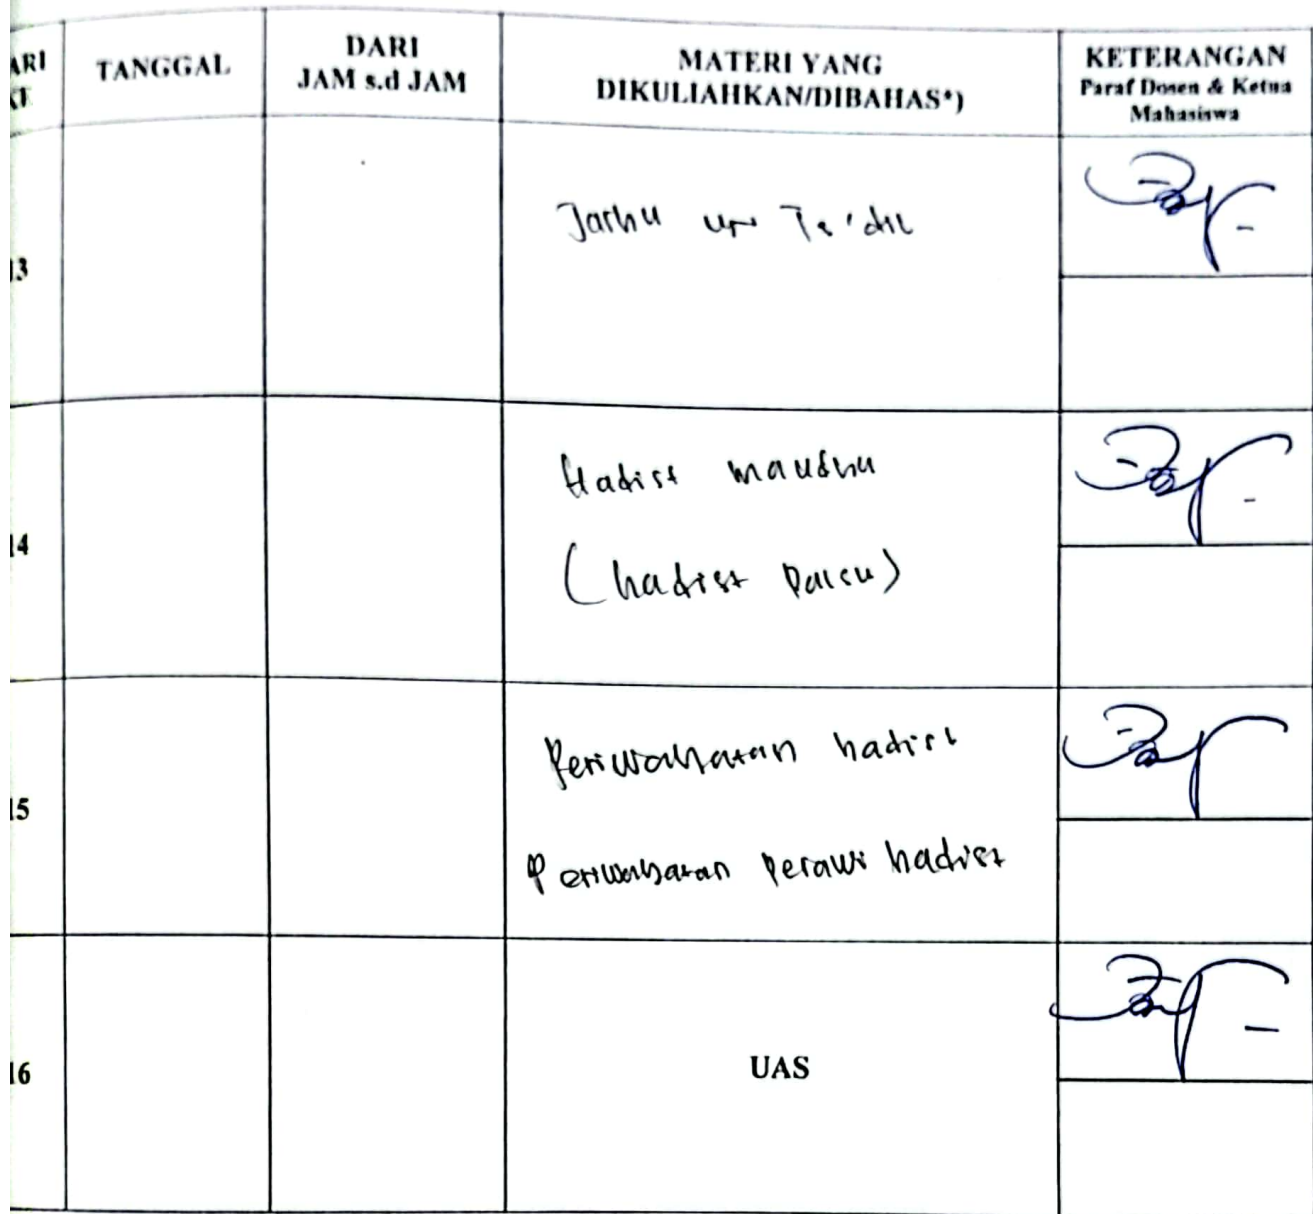 ARI
KE
TANGGAL
DARI
JAM s.d JAM
MATERI YANG
DIKULIAHKAN/DIBAHAS*)
KETERANGAN
Paraf Dosen & Ketua
Mahasiswa
13
Jarhu wa Ta'dil
14
Hadist maudhu
(hadist palsu)
15
Periwayatan hadist
Periwayatan Perawi hadist
16
UAS